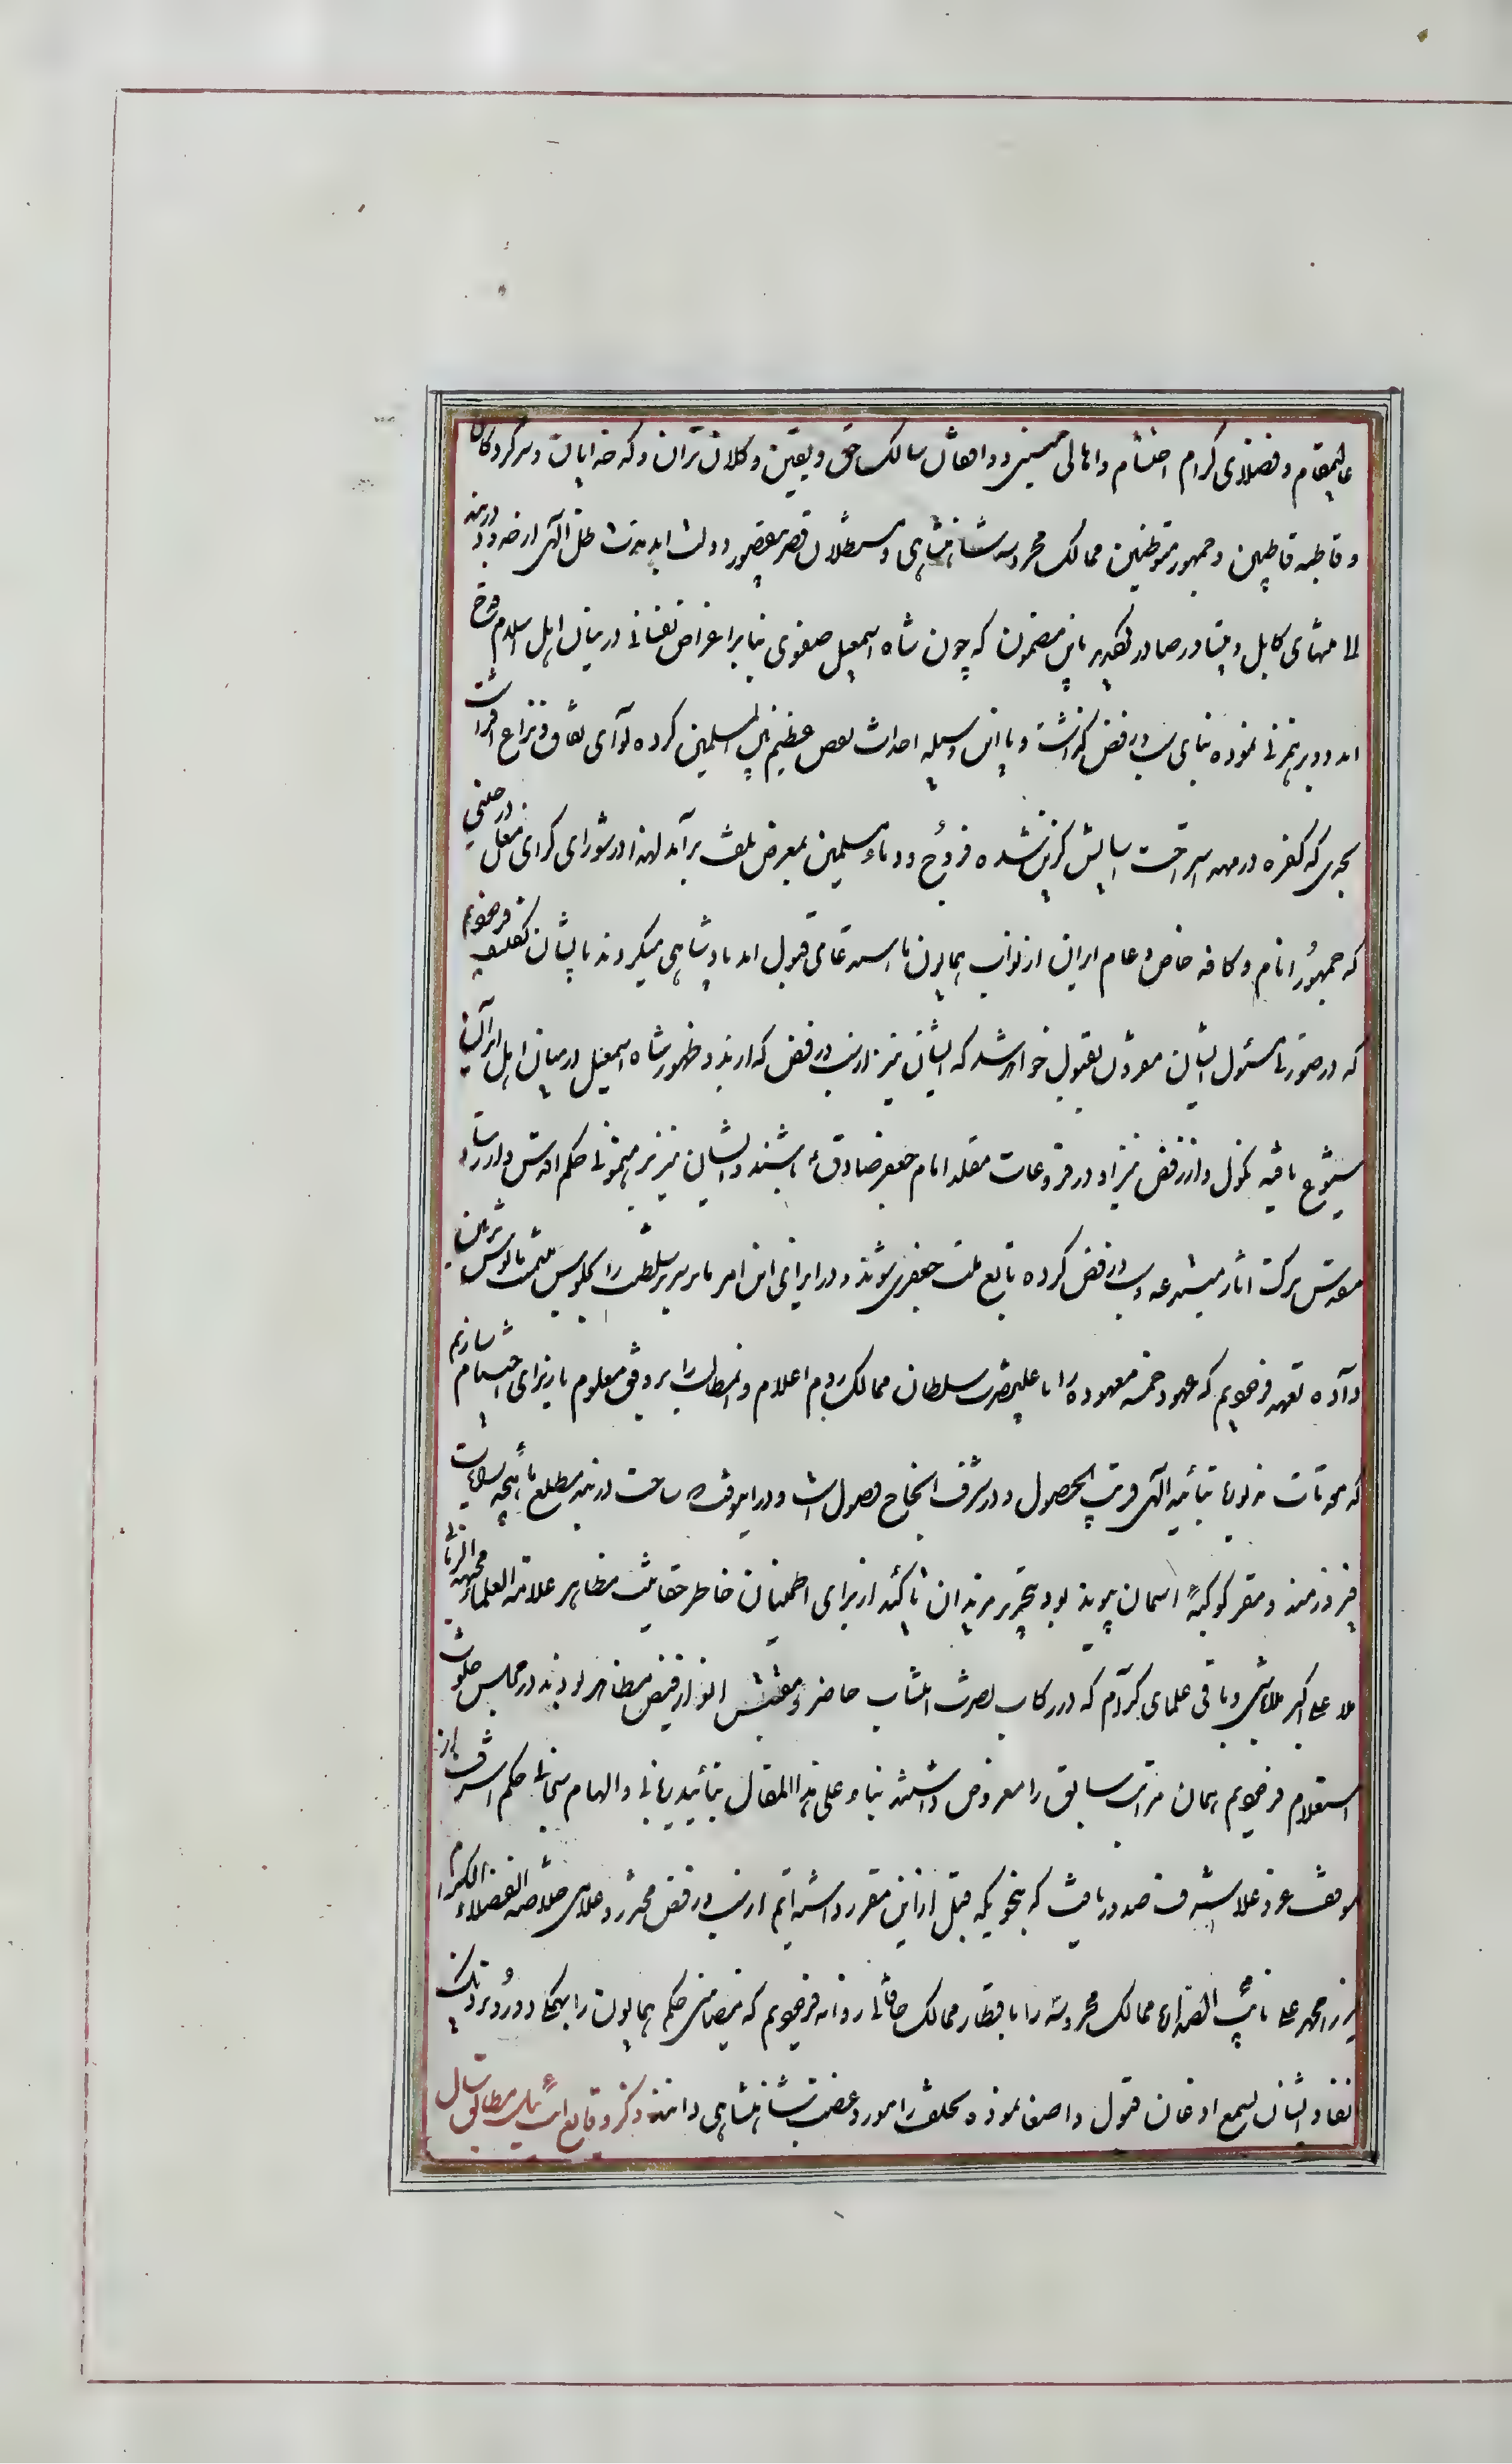 عالیمقام و فضلای کرام احتشام و اهالی و واقفان سالک حق و یقین و کلانتران و کدخدایان و سرکردکان
و قاطبه قاطنین و جمهور متوطنین ممالک محروسه شاهنشاهی و مستظلان قصر بیقصور دولت ابدمدت ظل آلهی از حدود دربند
الا منتهای کابل و پیشاور صادر کردید باین مضمون که چون شاه اسمعیل صفوی بنا بر اغراض نفسانی درمیان اهل اسلام قدح
و برهمزنی نموده بنای سب و رفض کذاشت و باین وسیله احداث بغض عظیم بین المسلمین کرده لوآی نفاق و نزاع افراشت
بحدی که کفره در مهد استراحت آسایش کزین شده فروج و دماء مسلمین بمعرض تلف برآمد لهذا در شورای کبرای مغان درحینی
که جمهور انام و کافه خاص و عام ایران از نواب همایون ما استدعای قبول امر پادشاهی میکردند بایشان تکلیف فرمودیم
که در صورتی مسئول ایشان مقرون بقبول خواهد شد که ایشان نیز از سب و رفض که از بدو ظهور شاه اسمعیل درمیان اهل ایران
شیوع یافته نکول و از رفض تبرا و در فروعات مقلد امام جعفر صادق ع باشند و ایشان نیز برهنمونی حکم اقدس و ارشاد
مقدس برکت آثار سب و رفض کرده تابع ملت جعفری شوند و در ازای این امر ما سریر سلطنت را بجلوس میمنت مانوس تزیین
داده تعهد فرمودیم که عهود خمسه معهوده را با علیحضرت سلطان ممالک روم اعلام و آنمطالب را بر وفق معلوم انجام سازیم
که بتائید آلهی قریب الحصول و در شرف انجاح وصول است و در اینوقت که ساحت دربند مطلع ماهچه رایات
فیروزمند و مقر کوکبه آسمان پیوند بود بتحریر مزید آن تاکید از برای اطمینان خاطر حقانیت مظاهر علامة العلمائی مجتهد الزمانی
ملا علی اکبر ملاباشی و باقی علمای کرام که در رکاب نصرت انتساب حاضر و مقتبس انوار فیض مظاهر بودند در مجلس خلوت
استعلام فرمودیم همان مراتب سابق را معروض داشتند بناء علی هذا المقال بتائید ربانی و الهام سبحانی حکم اشرف از
موقف عز و علا شرف صدور یافت که بنحویکه قبل ازاین مقرر داشته ایم از سب و رفض محترز و علامی خلاصة الفضلاء الکرام
میرزا محمد علی نائب الصداره ممالک محروسه را باقطار ممالک خاقانی روانه فرمودیم که مضامین حکم همایون را بهمکی دور و نزدیک
ایشان بسمع اذعان قبول و اصغا نموده تخلف را مورد غضب شاهنشاهی دانند ذکر وقایع ئیل مطابق سال